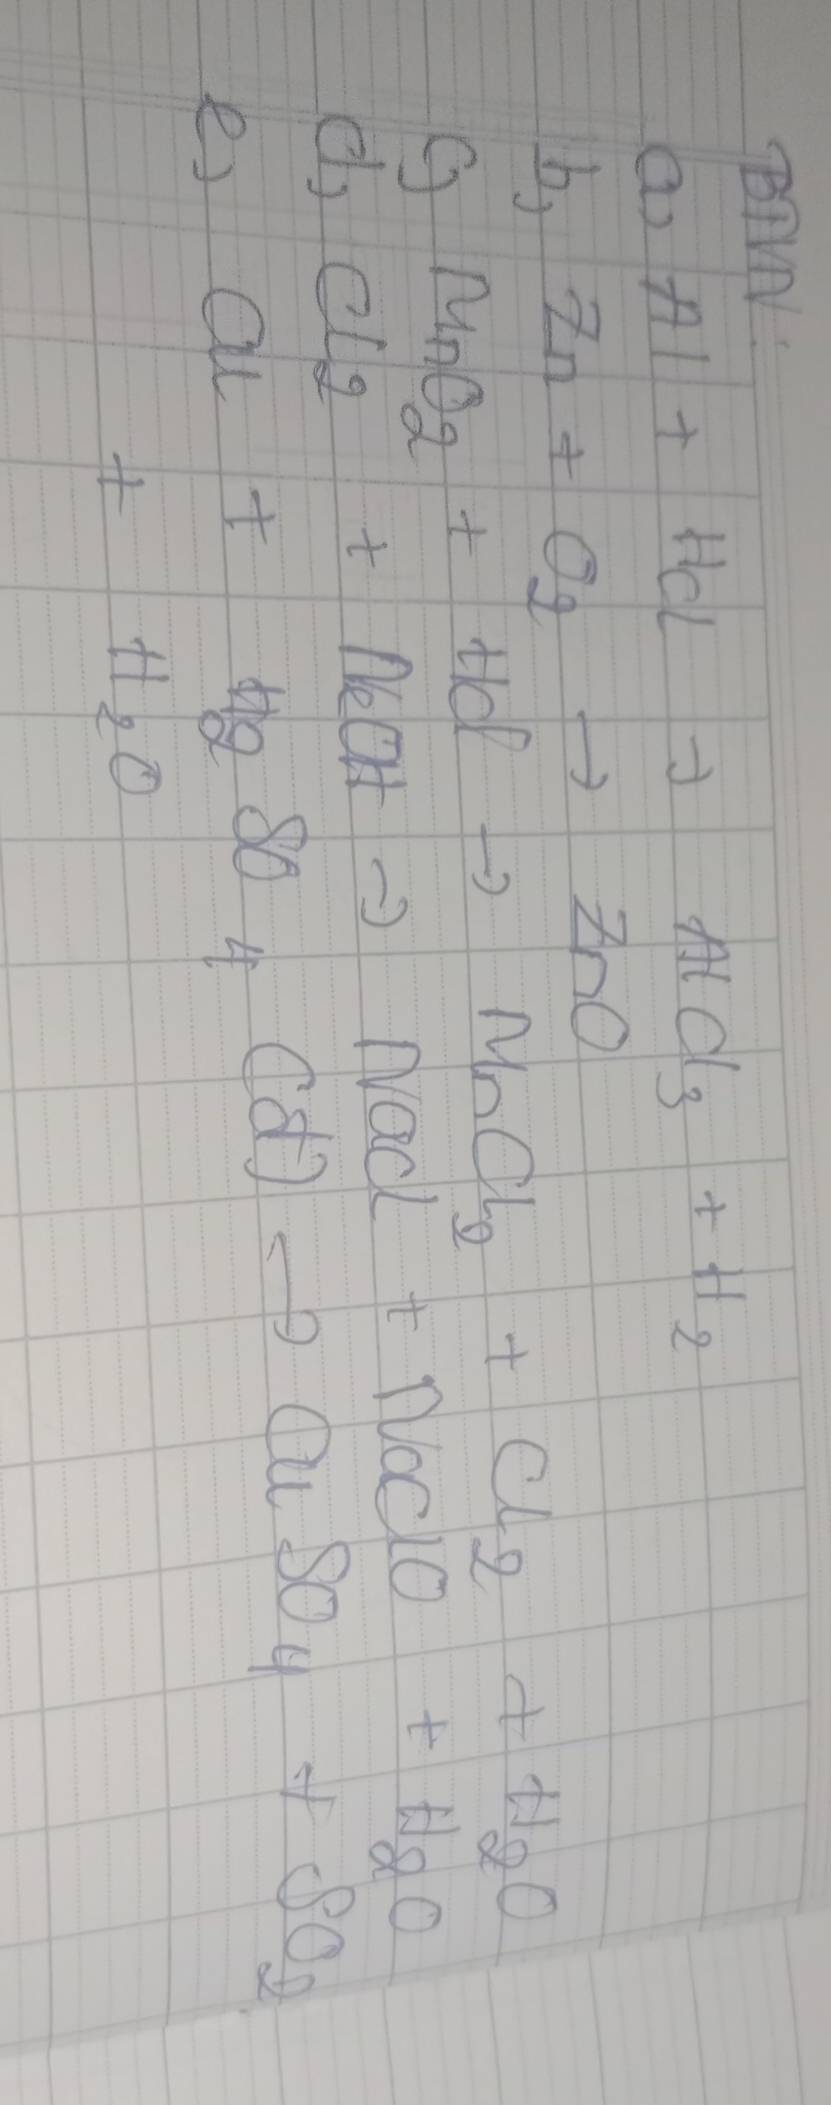 BTVN:
a, Al + HCl → AlCl3 + H2
b, Zn + O2 → ZnO
c, MnO2 + HCl → MnCl2 + Cl2 + H2O
d, Cl2 + NaOH → NaCl + NaClO + H2O
e, Cu + H2SO4 (đ) → CuSO4 + SO2
+ H2O